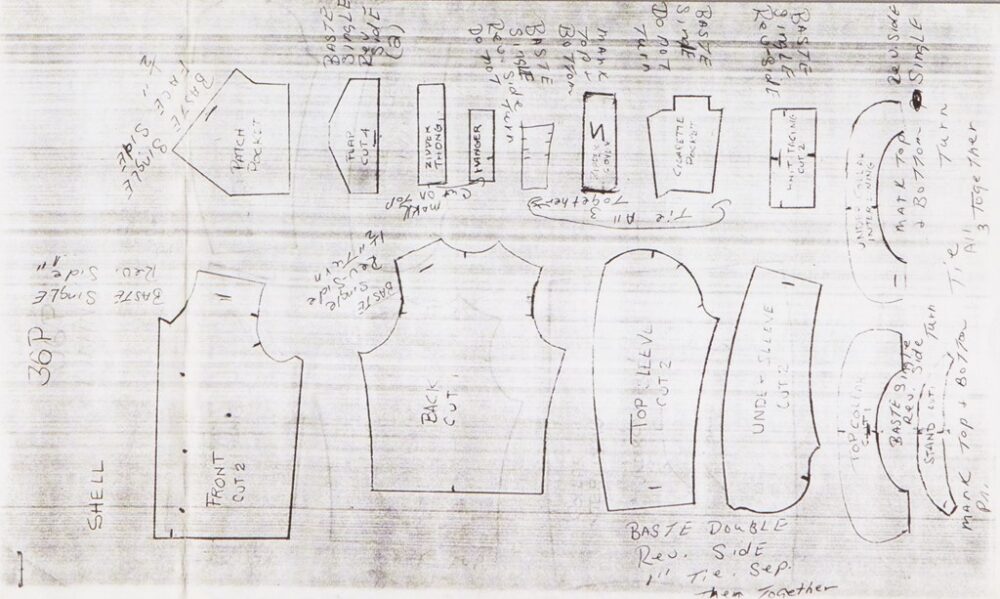 BASTE
SINGLE
Rev
SIDE
(2)
BASTE
Single
Rev. Side
Do not
Turn
MARK
TOP +
BOTTOM
BASTE
Single
Do not
Turn
BASTE
SINGLE
Rev Side
Rev. Side
Single
Turn
BASTE
FACE
1/2"
SINGLE
Side
PATCH
POCKET
FLAP
CUT 4
ZIPPER
THONG
HANGER
CIGARETTE
POCKET
CUT 2
UNDER COLLAR
INTERLINING
MARK TOP
+ BOTTOM
MARK
ON
TOP
Tie All
3
Together
Tie
All
3 Together
BASTE Single
Rev. Side
1"
BASTE
Single
Rev Side
1/2" Turn
36P
SHELL
FRONT
CUT 2
BACK
CUT 1
TOP SLEEVE
CUT 2
UNDER SLEEVE
CUT 2
TOP COLLAR
CUT 1
BASTE Single
Rev. Side
Turn
STAND CUT 1
MARK Top + BOTTOM
BASTE DOUBLE
Rev. Side
1" Tie. Sep.
them Together